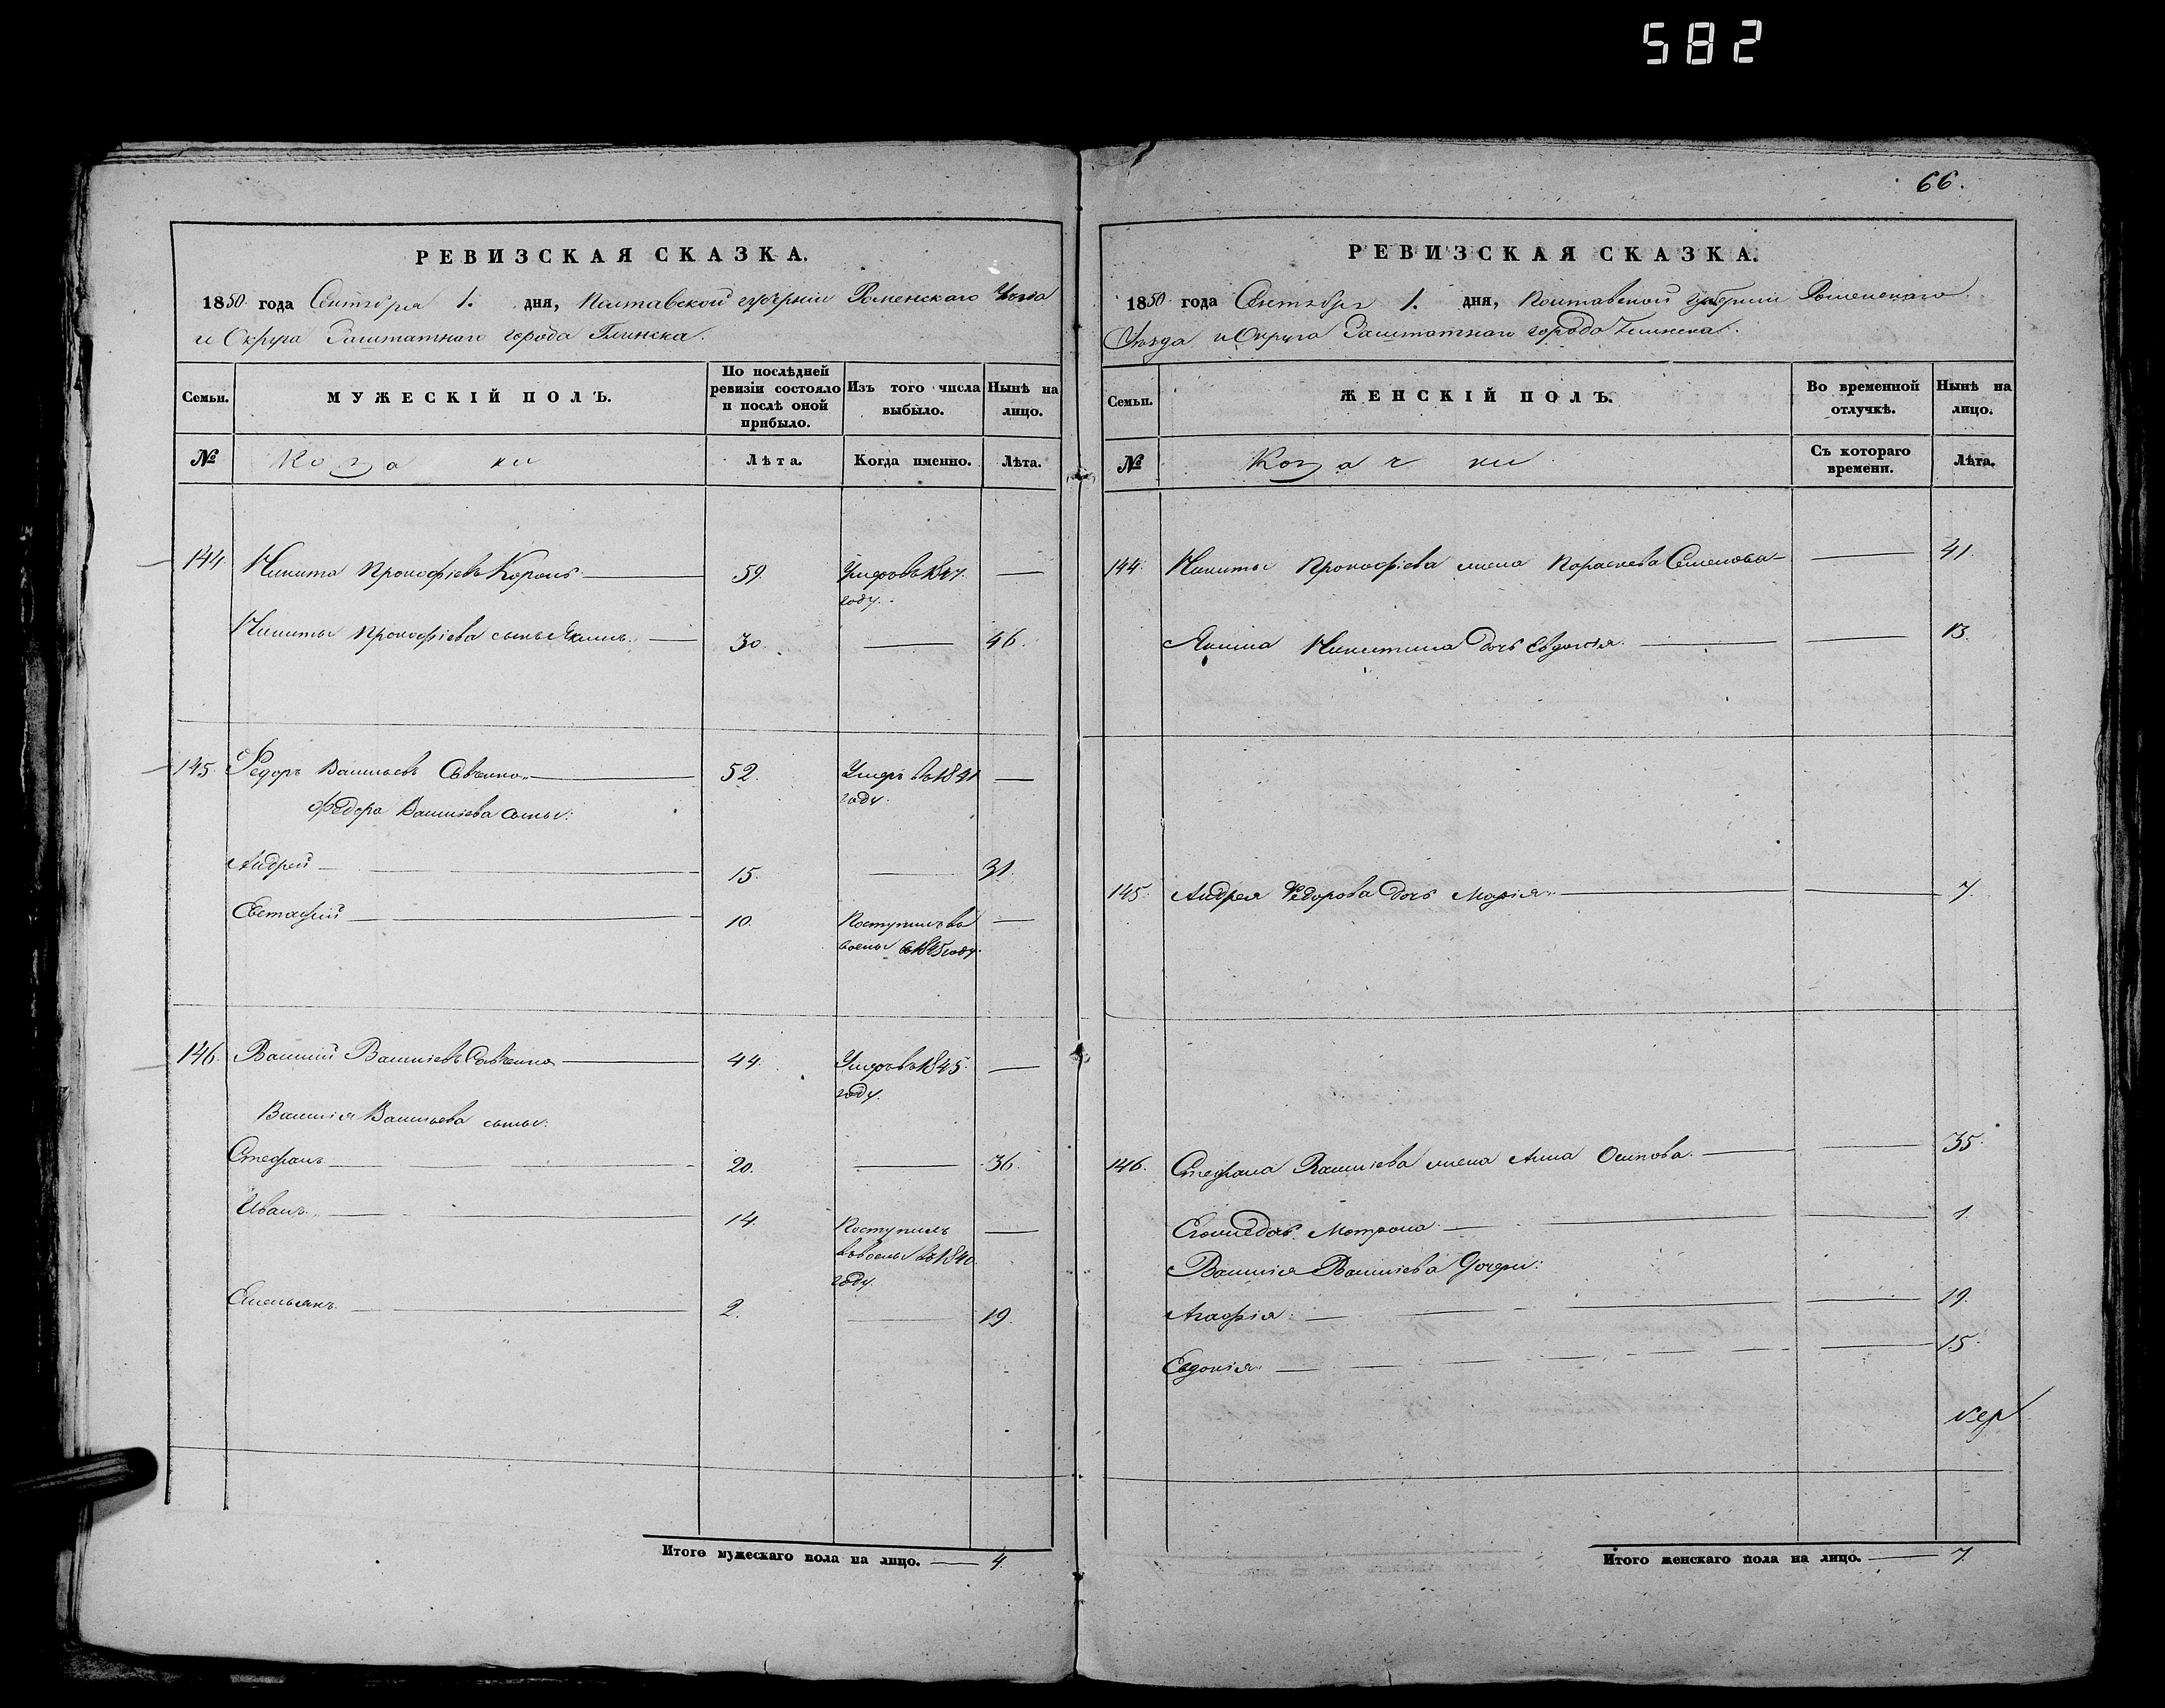 582
РЕВИЗСКАЯ СКАЗКА.
1850 года Сентября 1. дня, Полтавской губерніи Роменскаго Уезда
и Округа Заштатнаго города Глинска.
Семьи.
МУЖЕСКІЙ ПОЛЪ.
По послѣдней ревизіи состояло и послѣ оной прибыло.
Изъ того числа выбыло.
Нынѣ на лицо.
№
Козаки
Лѣта.
Когда именно.
Лѣта.
144 Никита Прокофіевъ Король 59. Умеръ въ 1847. —
году.
Никиты Прокофіева сынъ Якимъ. 30. — 46.
145. Федоръ Васильевъ Савченко 52. Умеръ въ 1841 —
году.
Федора Василіева сыны:
Андрей 15. — 31.
Евстафий 10. Поступилъ въ —
воены в 1845 году.
146. Василий Василіевъ Савченко 44. Умеръ въ 1845. —
году.
Василія Васильева сыны:
Стефанъ 20. — 36.
Иванъ. 14. Поступилъ —
въ воены въ 1840.
году.
Емельянъ. 2. — 19.
Итого мужескаго пола на лицо. — 4.
66.
РЕВИЗСКАЯ СКАЗКА.
1850 года Сентября 1. дня, Полтавской губерніи Роменскаго
Уѣзда и Округа Заштатнаго города Глинска.
Семьи.
ЖЕНСКІЙ ПОЛЪ.
Во временной отлучкѣ.
Нынѣ на лицо.
№
Козачки
Съ котораго времени.
Лѣта.
144. Никиты Прокофіева жена Параскева Семенова — 41.
Якима Никитина дочь Евдокія. — 13.
145. Андрея Федорова дочь Марія. — 7.
146. Стефана Василіева жена Анна Осипова. — 35.
Его же дочь Мотрона — 1.
Василія Василіева дочери:
Агафія — 19.
Евдокія — 15.
Итого женскаго пола на лицо. — 7.